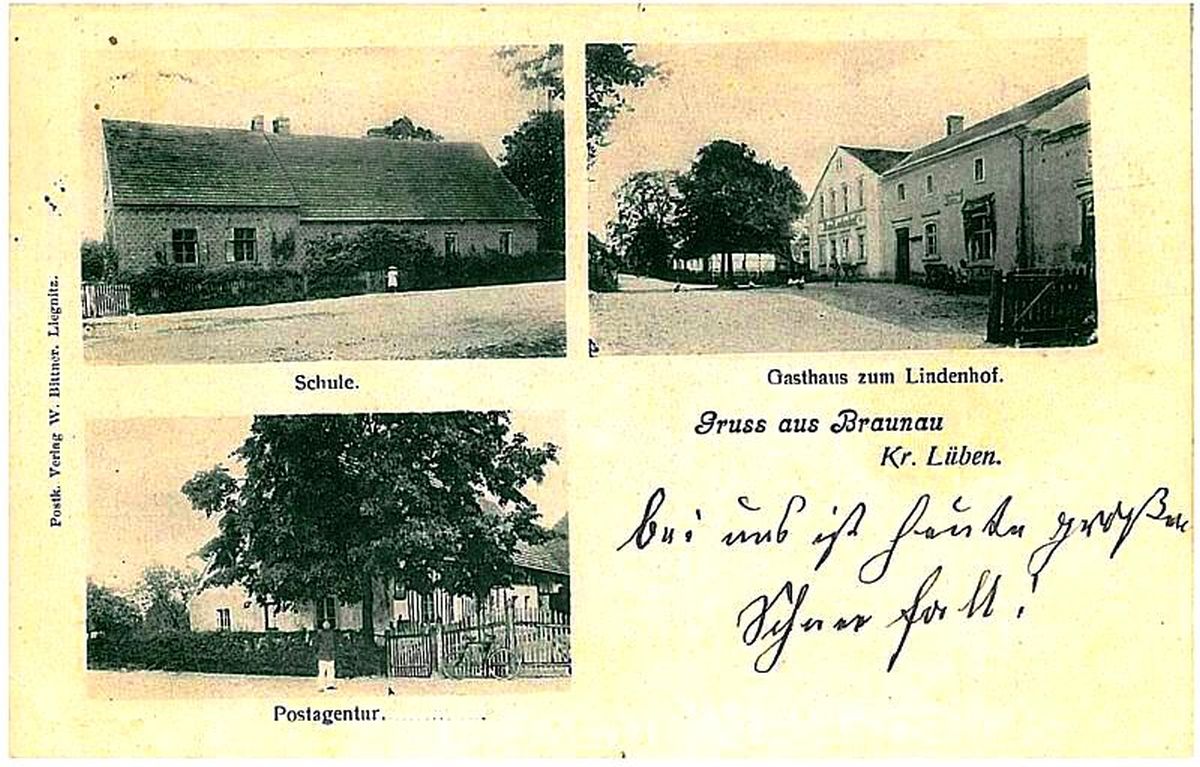 Schule.
Gasthaus zum Lindenhof.
Postk. Verlag W. Bittner. Liegnitz.
Gruss aus Braunau
Kr. Lüben.
bei uns ist heute großer
Schnee fall!
Postagentur.